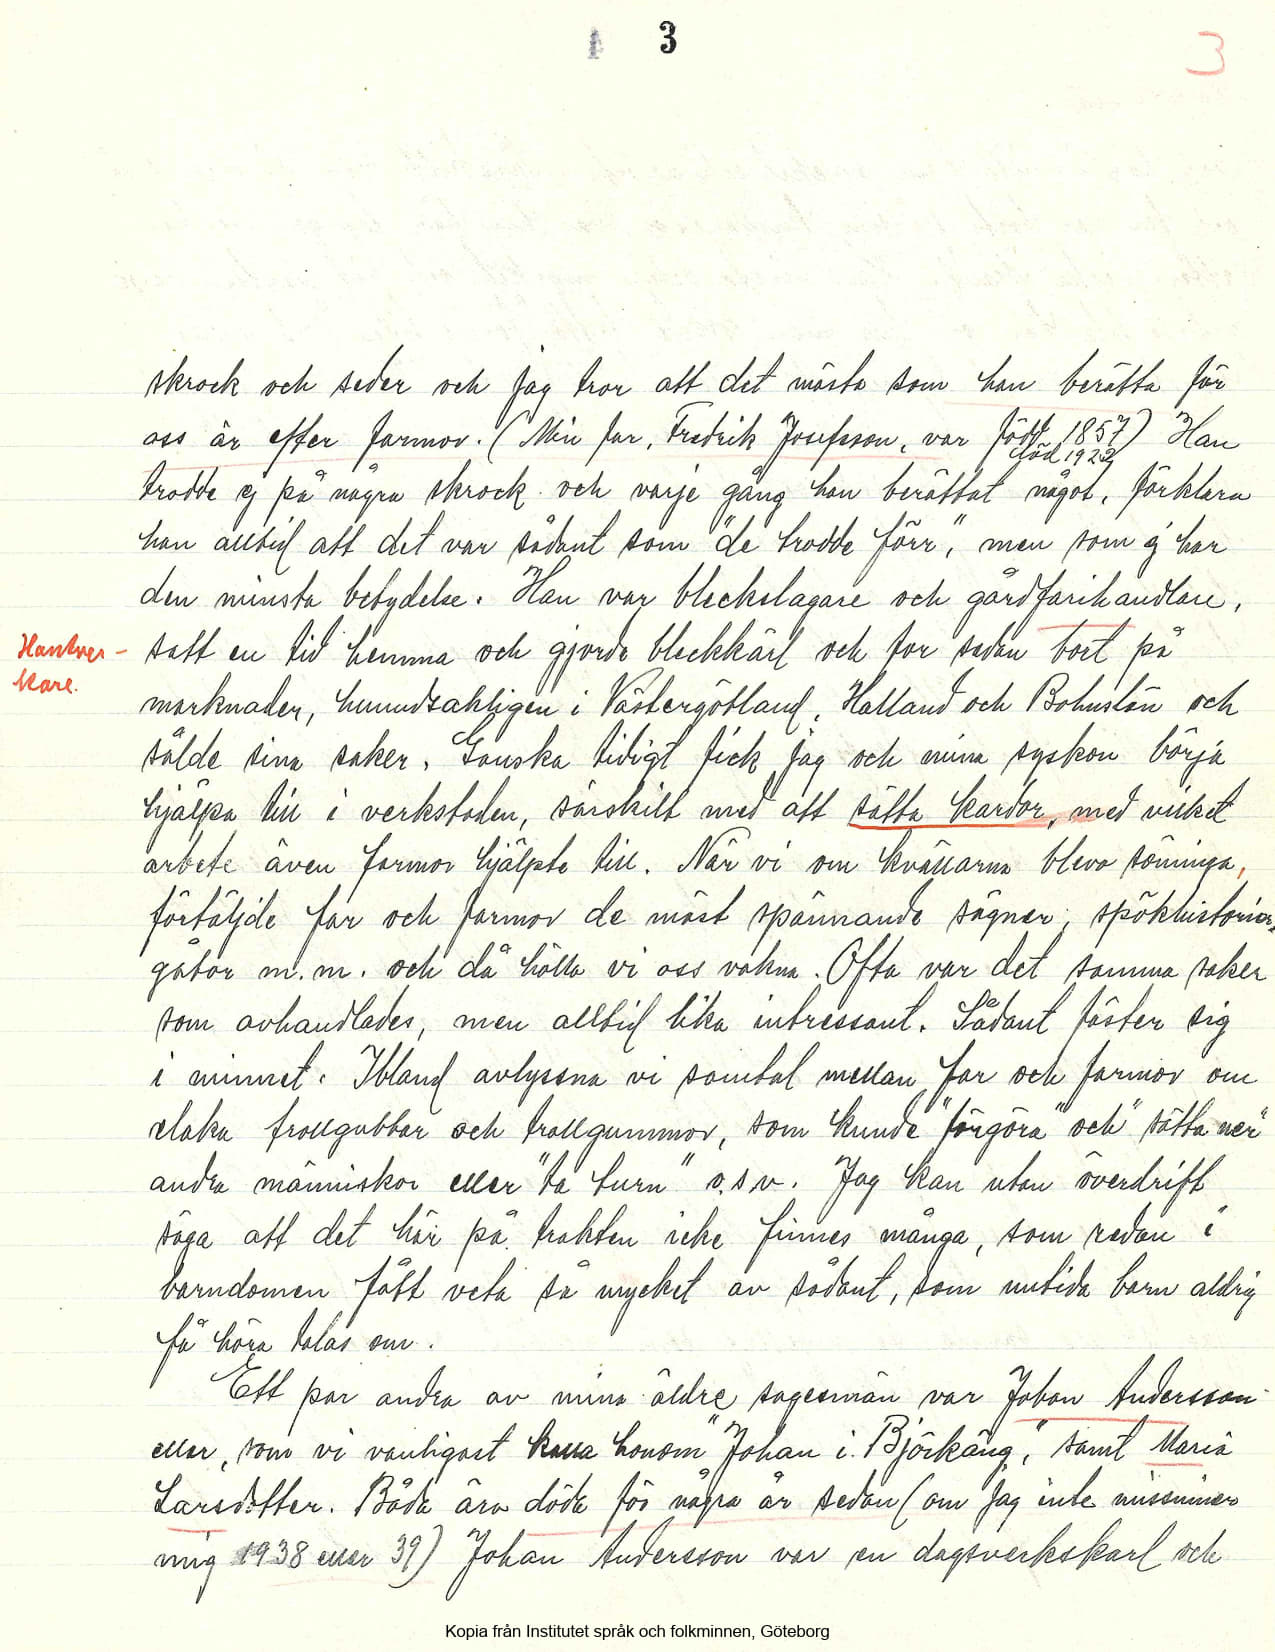 3
3
skrock och seder och jag tror att det mästa som han berätta för
oss är efter farmor. (Min far, Fredrik Josefsson, var född 1857) Han
död 1922
trodde ej på några skrock och varje gång han berättat något, förklara
han alltid att det var sådant som "de trodde förr", men som ej har
den minsta betydelse. Han var bleckslagare och gårdfarihandlare,
Hantver-
kare.
satt en tid hemma och gjorde bleckkärl och for sedan bort på
marknader, huvudsakligen i Västergötland, Halland och Bohuslän och
sålde sina saker. Ganska tidigt fick jag och mina syskon börja
hjälpa till i verkstaden, särskilt med att sätta kardor, med vilket
arbete även farmor hjälpte till. När vi om kvällarna blevo sömniga,
förtäljde far och farmor de mäst spännande sägner, spökhistorier,
gåtor m.m. och då hölla vi oss vakna. Ofta var det samma saker
som avhandlades, men alltid lika intressant. Sådant fäster sig
i minnet. Ibland avlyssna vi samtal mellan far och farmor om
elaka trollgubbar och trollgummor, som kunde "förgöra" och "sätta ner"
andra människor eller "ta turn" o.s.v. Jag kan utan överdrift
säga att det här på trakten icke finnes många, som redan i
barndomen fått veta så mycket av sådant, som nutida barn aldrig
få höra talas om.
Ett par andra av mina äldre sagesmän var Johan Andersson
eller, som vi vanligast kalla honom "Johan i Björkäng", samt Maria
Larsdotter. Båda äro döda för några år sedan (om jag inte missminner
mig 1938 eller 39) Johan Andersson var en dagsverkskarl och
Kopia från Institutet språk och folkminnen, Göteborg